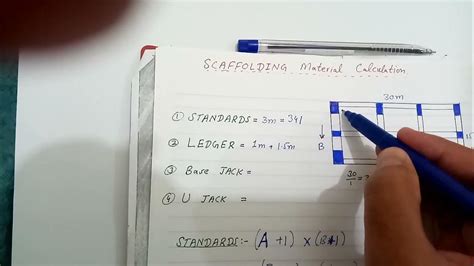 SCAFFOLDING Material Calculation
30m
① STANDARDS = 3m = 341
② LEDGER = 1m + 1.5m
15
B
③ Base JACK =
30/1 =
④ U JACK =
STANDARDS:- (A +1) × (B+1)